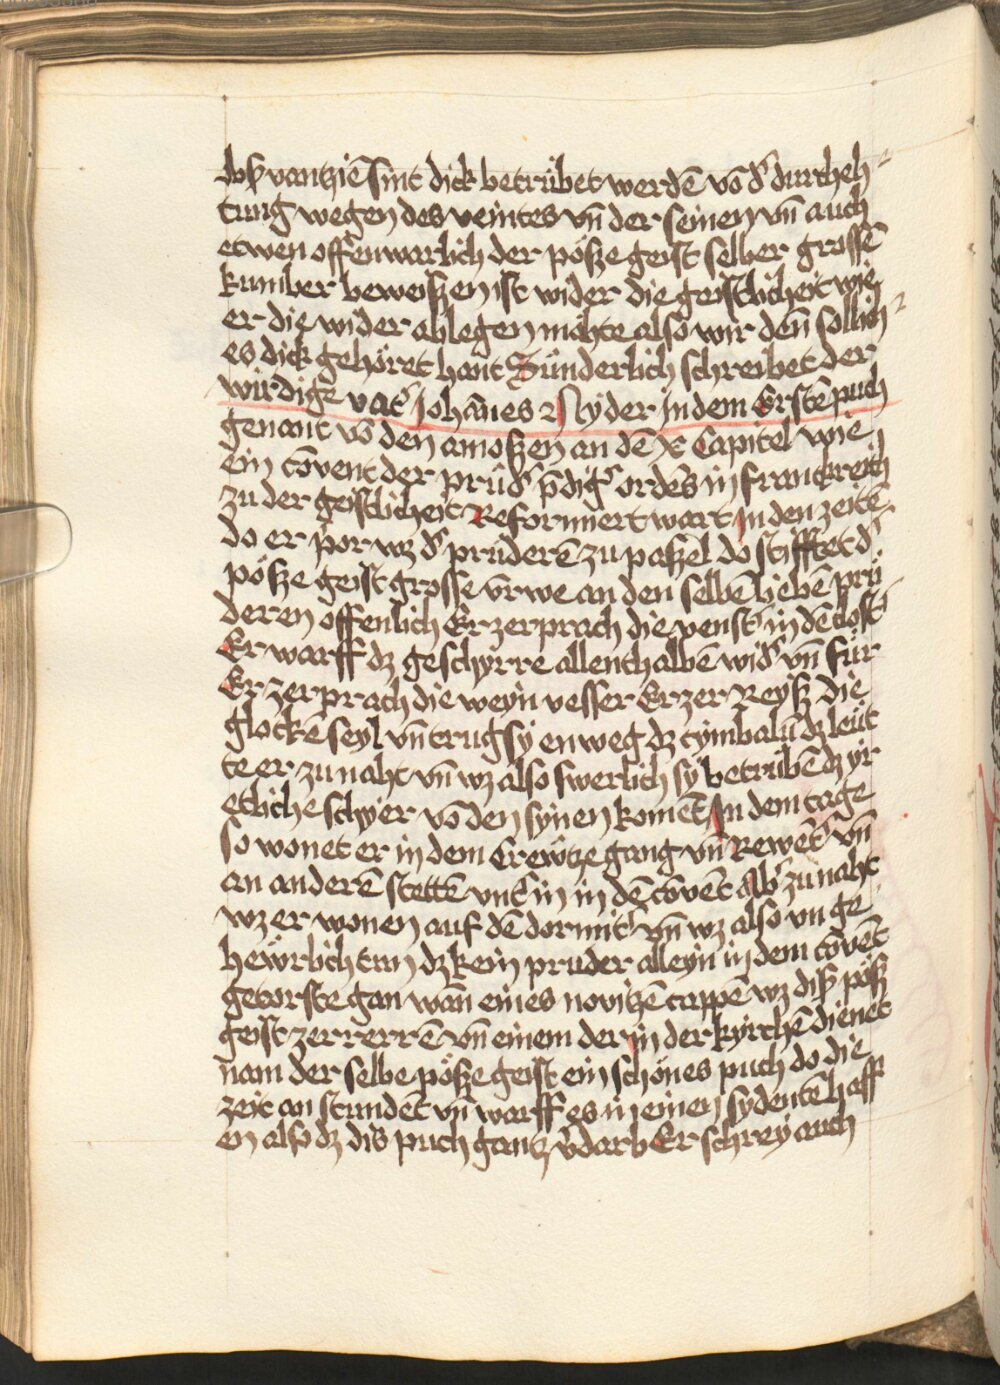 obseruantzien sint dick betrübet werdē vō dʾ durcheh-
tung wegen des veintes vn̄ der seinen vn̄ auch
etwen offenwarlich der pösze geist selber grossē
kumber beweiszen ist wider die geistlicheit wie
er die wider ablegen möhte also wir den̄ sollich-
es dick gehöret hant Sünderlich schreibet der
wirdige vatʾ Johānes Nyder In dem Erstē puch
genant vō den amoszen an dē x Capitel wie
ein cōvent der prūdʾ p̄digʾ ordēs in franckreich
zu der geistlicheit Reformiert wart In den zeitē
do er por wz dʾ prüderē zu paszel do stifftet dʾ
pösze geist grosse vrwe an den selbē liebē prü
deren offenlich Er zerprach die venstʾ in dē clostʾ
Er warff dz geschyrre allenthalbē widʾ vn̄ für
Er zerprach die weyn vesser Er zer Reysz die
glockē seyl vn̄ trug sy enweg dz cymbalū dz leüt
te er zu naht vn̄ wz also swerlich sy betrübē dz yr
etliche schyer vō den synen komēt In dem tage
so wonet er in dem Creützegang vn̄ Rewētʾ vn̄
an anderē stettē vntʾ in in dē cōvēt Abʾ zu naht
wz er wonen auf dē dormitʾ vn̄ wz also vn ge
hewrlich tun dz kein pruder alleyn in dem cōvēt
getorste gan wan̄ eines novitzē cappē wz disz pösz
geist zerrerrē vn̄ einem der in der kyrchē dienet
nam der selbe pösze geist ein schönes puch do die
zeit an stundēt vn̄ warff es in einen sydentē haff
en also dz dis puch gantz v̄darb Er schrey auch